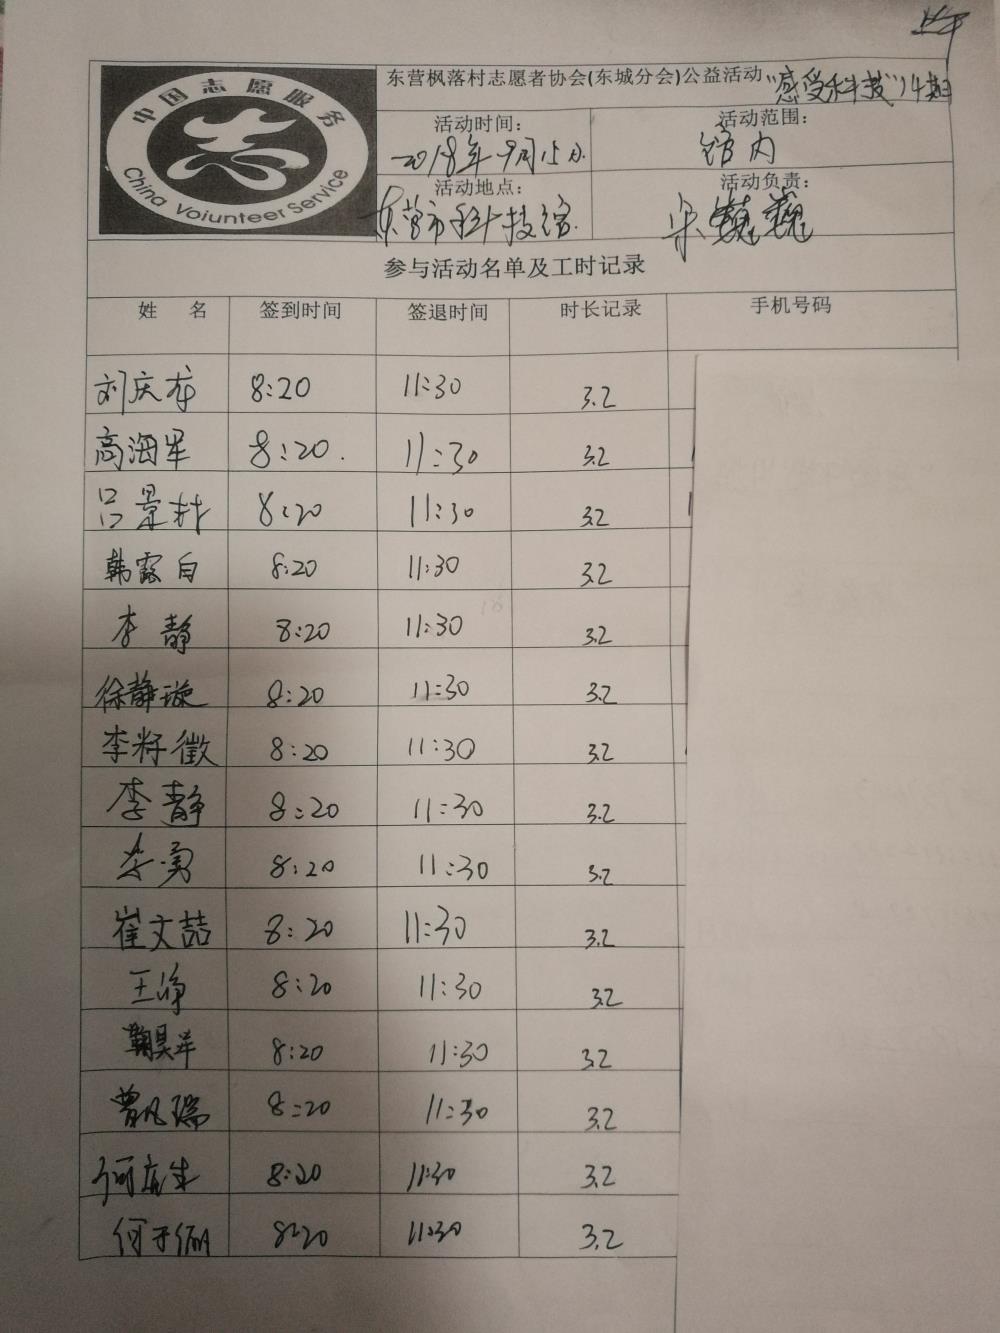 中国志愿服务
China Voiunteer Service
东营枫落村志愿者协会(东城分会)公益活动"感受科技"14期
活动时间:
2018年9月15日
活动范围:
馆内
活动地点:
东营市科技馆
活动负责:
宋巍巍
参与活动名单及工时记录
姓 名 签到时间 签退时间 时长记录 手机号码
刘庆龙 8:20 11:30 3.2
高海军 8:20. 11:30 3.2
吕景林 8:20 11:30 3.2
韩露自 8:20 11:30 3.2
李静 8:20 11:30 3.2
徐静璇 8:20 11:30 3.2
李籽徵 8:20 11:30 3.2
李静 8:20 11:30 3.2
李勇 8:20 11:30 3.2
崔文喆 8:20 11:30 3.2
王净 8:20 11:30 3.2
鞠昊洋 8:20 11:30 3.2
曹凡瑞 8:20 11:30 3.2
何庆生 8:20 11:30 3.2
何子俪 8:20 11:30 3.2